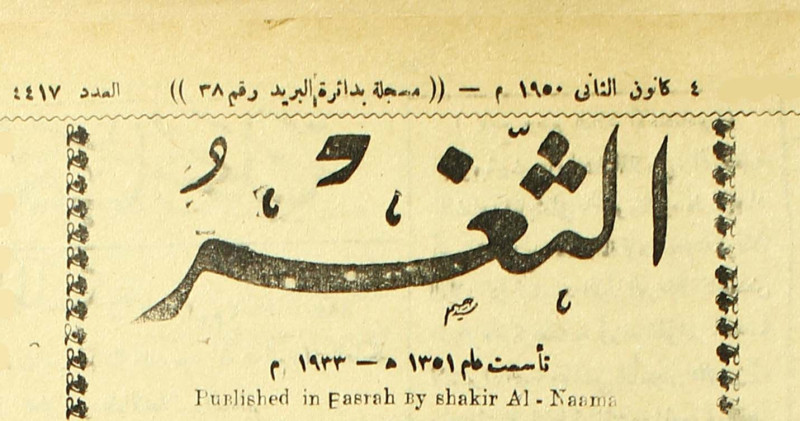 ٤ كانون الثانى ١٩٥٠ م — (( مسجلة بدائرة البريد رقم ٣٨ )) العدد ٤٤١٧
الثَّغْرُ
تأسست عام ١٣٥١ ه — ١٩٣٣ م
Published in Basrah By shakir Al - Naama